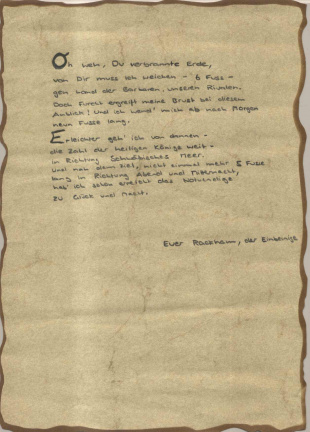 Oh weh, Du verbrannte Erde,
von Dir muss ich weichen - 6 Fuss -
gen Land der Barbaren, unseren Rivalen.
Doch Furcht ergreift meine Brust bei diesem
Anblick! Und ich wend' mich ab nach Morgen
neun Fusse lang.
Erleichter geh' ich von dannen -
die Zahl der heiligen Könige weit -
in Richtung Schwäbisches Meer.
Und nah dem Ziel, nicht einmal mehr 5 Fusse
lang in Richtung Abend und Mitternacht,
hab' ich schon erreicht das Notwendige
zu Glück und Macht.
Euer Rackham, der Einbeinige